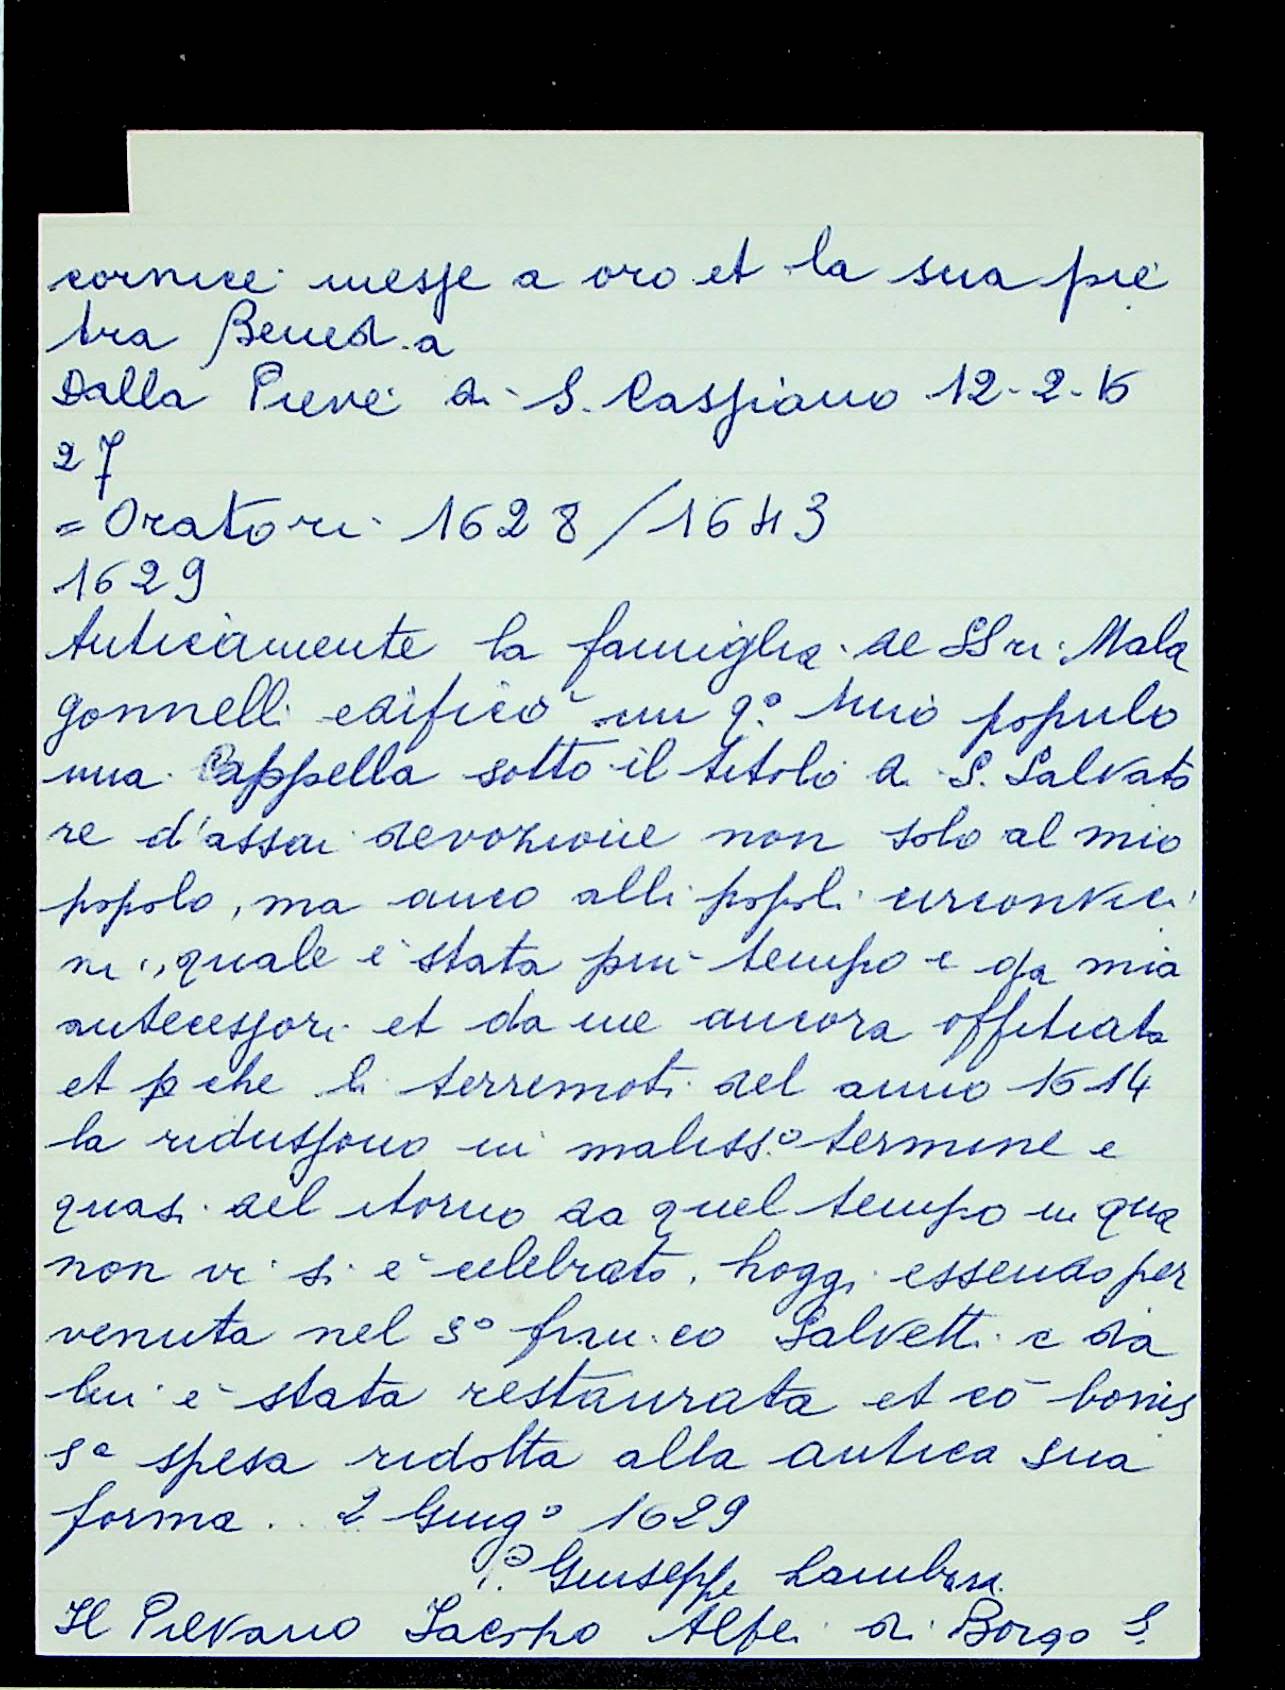 cornice messe a oro et la sua pie
tra Bened.a
Dalla Pieve di S. Cassiano 12-2-16
27
= Oratori 1628/1643
1629
Anticamente la famiglia de SSri Mala
gonnelli edificò in q.o mio populo
una Cappella sotto il titolo di S. Salvato
re d'assai devozione non solo al mio
popolo, ma anco alli popoli circonvici
ni, quale è stata più tempo e da mia
antecessori et da me ancora offitiata
et p che li terremoti del anno 1614
la ridussono in maliss.o termine e
quasi del itorno da quel tempo in qua
non vi si è celebrato, hoggi essendo per
venuta nel So fran.co Salvetti e da
lui è stata restaurata et cō bonis
sa spesa ridotta alla antica sua
forma. 2 Giugo 1629
P. Giuseppe
Il Pievano Iacopo Alfei di Borgo S.